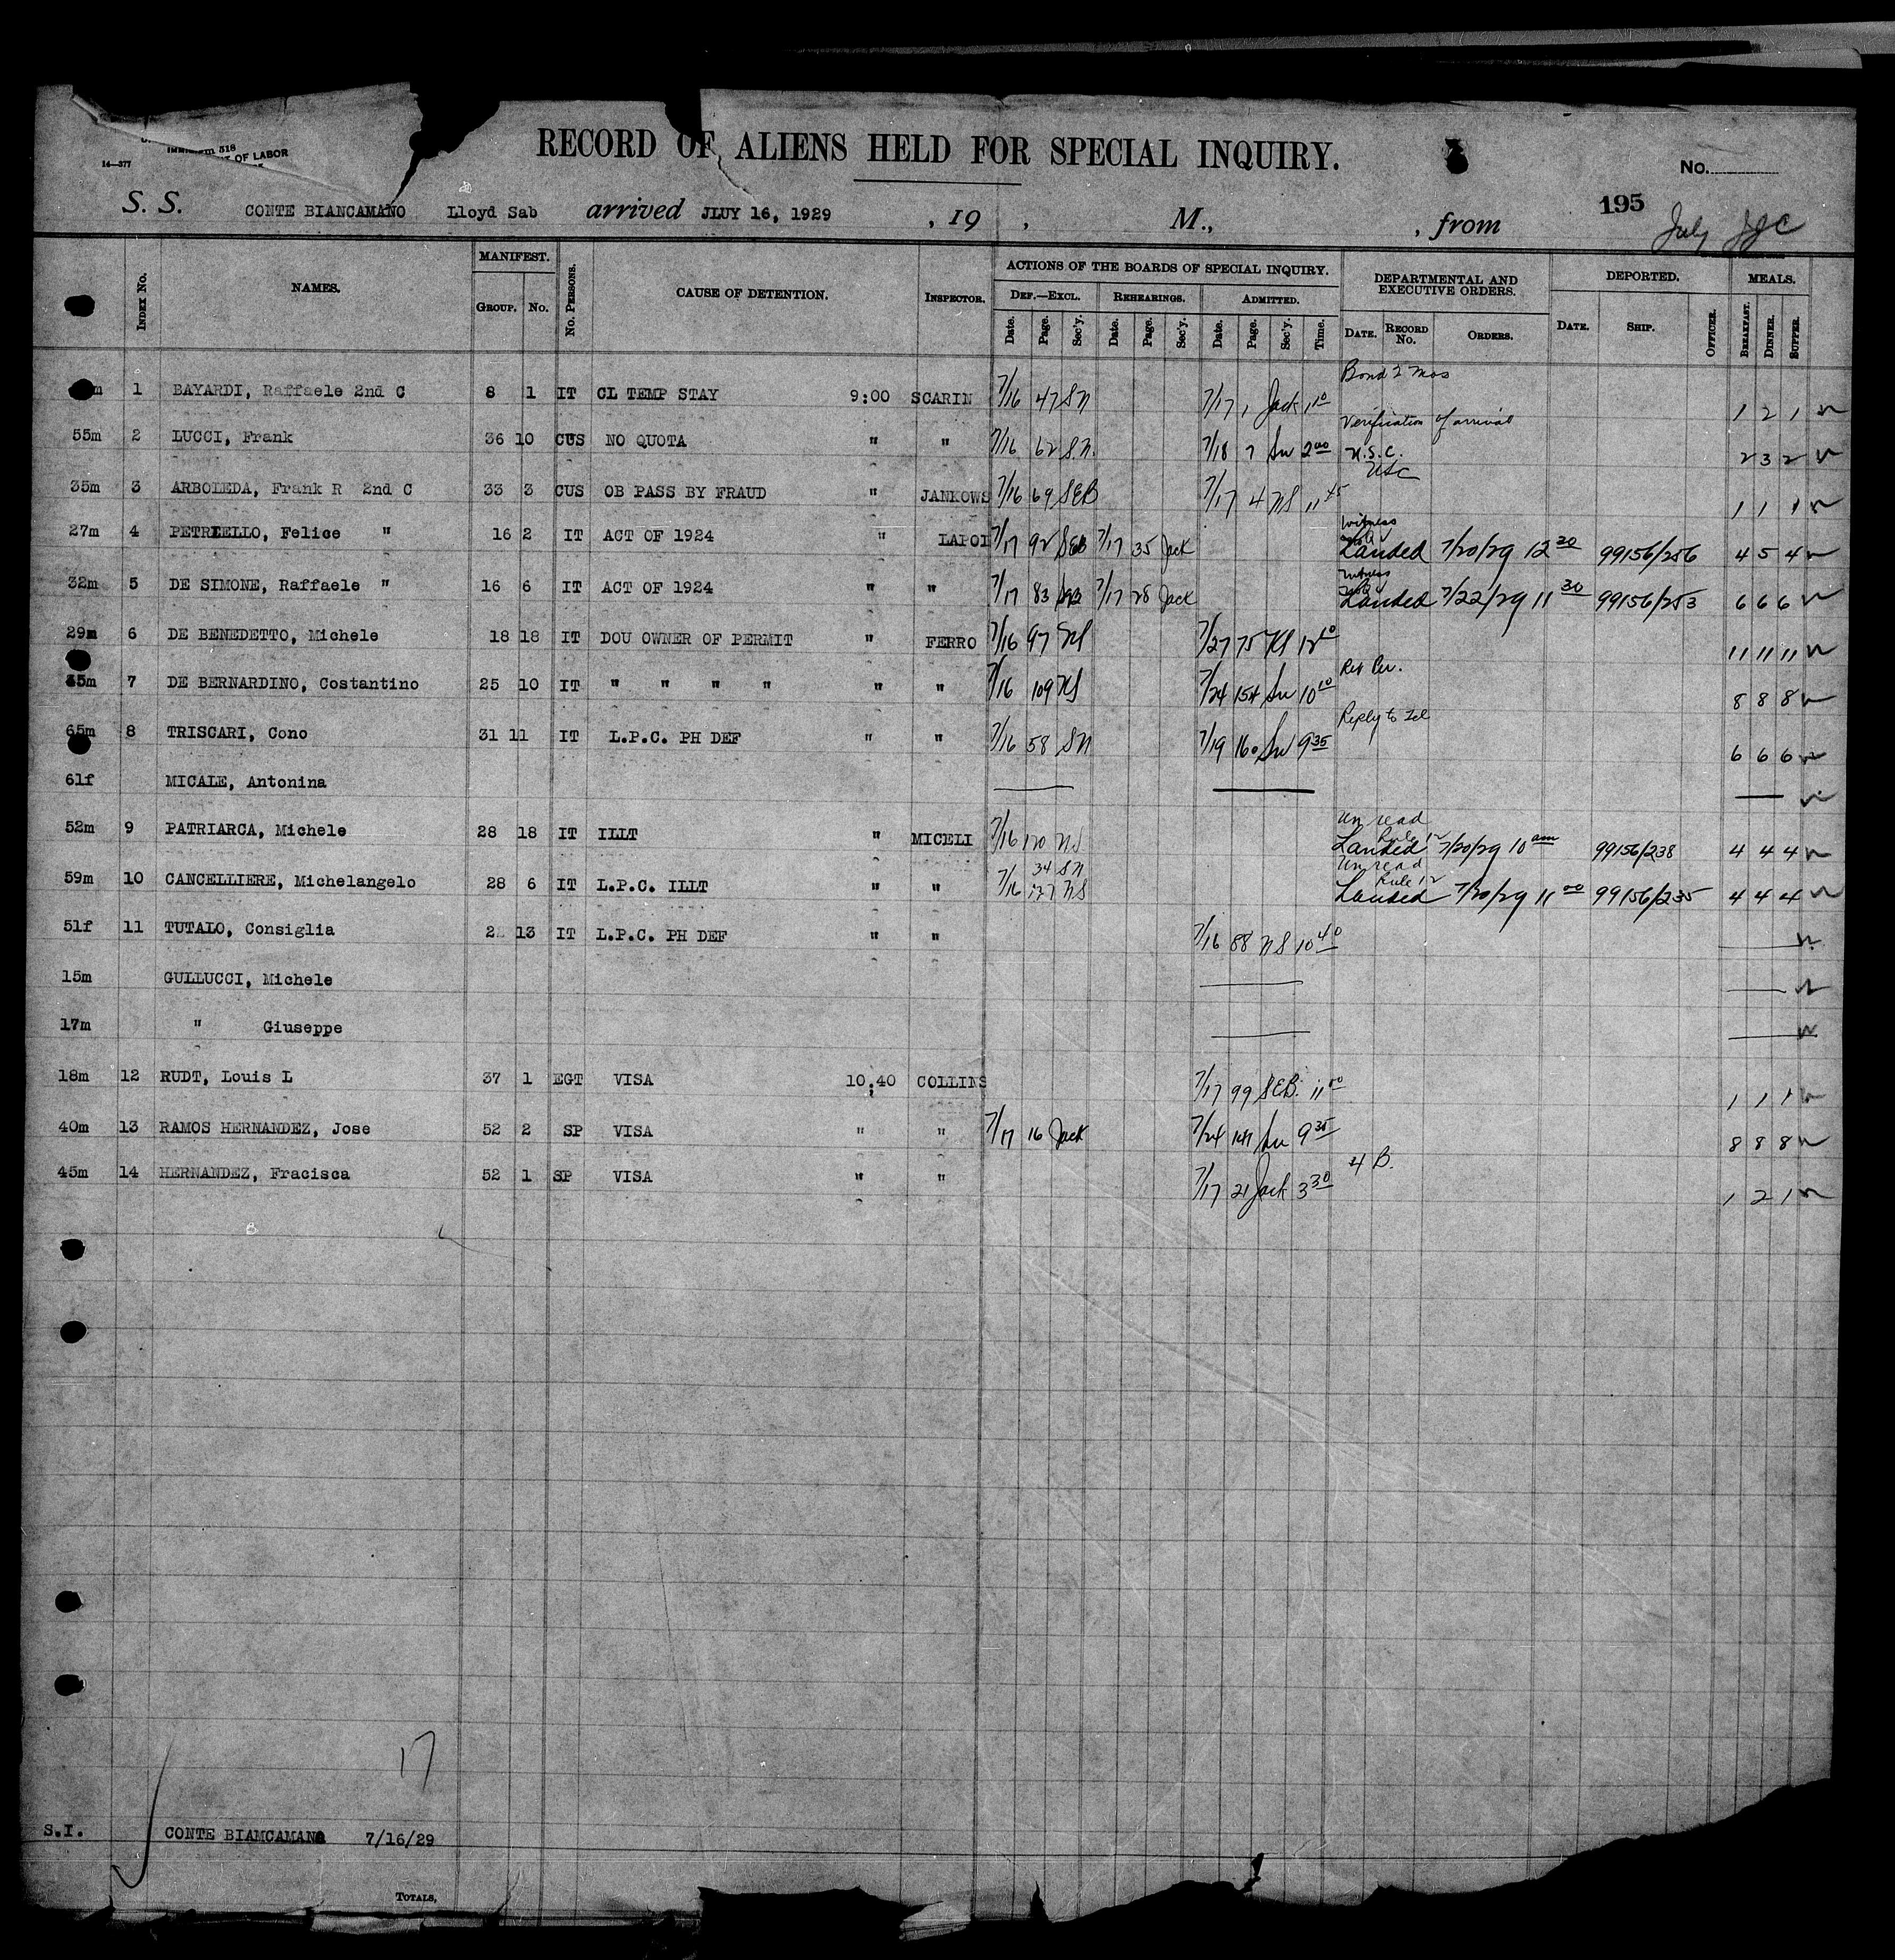 518
OF LABOR
16—377
RECORD OF ALIENS HELD FOR SPECIAL INQUIRY.
No.
195
S. S. CONTE BIANCAMANO Lloyd Sab arrived JLUY 16, 1929 , 19 , M., , from July
Index No. NAMES. MANIFEST. Group. No. No. Persons. CAUSE OF DETENTION. Inspector. ACTIONS OF THE BOARDS OF SPECIAL INQUIRY. DEPARTMENTAL AND EXECUTIVE ORDERS. DEPORTED. MEALS.
Def.—Excl. Rehearings. Admitted.
Date. Page. Sec'y. Date. Page. Sec'y. Date. Page. Sec'y. Time. Date. Record No. Orders. Date. Ship. Officer. Breakfast. Dinner. Supper.
Bond 2 mos
1 BAYARDI, Raffaele 2nd C 8 1 IT CL TEMP STAY 9:00 SCARIN 7/16 47 SN 7/17 1 Jack 1 10 1 2 1
Verification of arrival
55m 2 LUCCI, Frank 36 10 CUS NO QUOTA " " 7/16 62 S.N. 7/18 7 Sw 2 00 U.S.C. 2 3 2
USC
35m 3 ARBOLEDA, Frank R 2nd C 33 3 CUS OB PASS BY FRAUD " JANKOWS 7/16 69 SEB 7/17 4 NS 11 45 1 1 1
Witness
27m 4 PETRIELLO, Felice " 16 2 IT ACT OF 1924 " LAPOI 7/17 92 SEB 7/17 35 Jack Landed 7/20/29 12 30 99156/256 4 5 4
Witness
32m 5 DE SIMONE, Raffaele " 16 6 IT ACT OF 1924 " " 7/17 83 7/17 28 Jack Landed 7/22/29 11 30 99156/253 6 6 6
29m 6 DE BENEDETTO, Michele 18 18 IT DOU OWNER OF PERMIT " FERRO 7/16 97 7/27 75 11 11 11
45m 7 DE BERNARDINO, Costantino 25 10 IT " " " " " " 7/16 109 NS 7/24 154 Sw 10 10 8 8 8
Reply to Tel
65m 8 TRISCARI, Cono 31 11 IT L.P.C. PH DEF " " 7/16 58 SN 7/19 160 Sw 9 35 6 6 6
61f MICALE, Antonina
Un read
Rule 12
52m 9 PATRIARCA, Michele 28 18 IT ILLT " MICELI 7/16 120 NS Landed 7/20/29 10 am 99156/238 4 4 4
34 SN Un read
Rule 12
59m 10 CANCELLIERE, Michelangelo 28 6 IT L.P.C. ILLT " " 7/16 127 NS Landed 7/20/29 11 00 99156/235 4 4 4
51f 11 TUTALO, Consiglia 2 13 IT L.P.C. PH DEF " " 7/16 88 NS 10 40
15m GULLUCCI, Michele
17m " Giuseppe
18m 12 RUDT, Louis L 37 1 EGT VISA 10:40 COLLINS 7/17 99 SEB. 11 00 1 1 1
40m 13 RAMOS HERNANDEZ, Jose 52 2 SP VISA " " 7/17 16 Jack 7/24 Sw 9 35 8 8 8
4 B.
45m 14 HERNANDEZ, Fracisca 52 1 SP VISA " " 7/17 21 Jack 3 30 1 2 1
17
S.I. CONTE BIAMCAMANO 7/16/29
Totals,